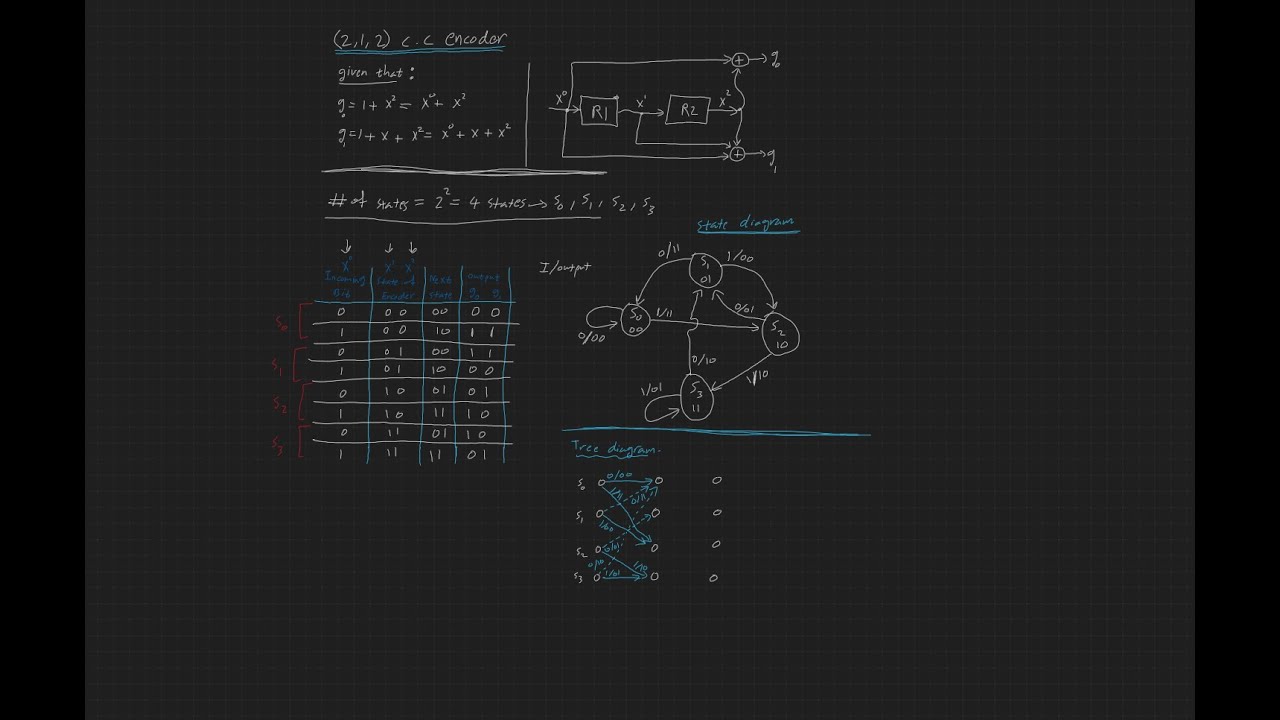 (2,1,2) C.C encoder
given that:
g₀ = 1 + x² = x⁰ + x²
g₁ = 1 + x + x² = x⁰ + x + x²
x⁰ R1 x¹ R2 x² + g₀
+ g₁
# of states = 2² = 4 states → S₀, S₁, S₂, S₃
x⁰ x¹ x²
Incoming Bit | State → Encoder | Next State | output g₀ g₁
S₀
0 | 00 | 00 | 0 0
1 | 00 | 10 | 1 1
S₁
0 | 01 | 00 | 1 1
1 | 01 | 10 | 0 0
S₂
0 | 10 | 01 | 0 1
1 | 10 | 11 | 1 0
S₃
0 | 11 | 01 | 1 0
1 | 11 | 11 | 0 1
state diagram
I/output
0/11
S₁
01
1/00
S₀
00
0/00
1/11
0/01
S₂
10
0/10
1/10
1/01
S₃
11
Tree diagram.
S₀ 0/00
1/11
0/11
S₁
1/00
S₂ 0/01
0/10 1/10
S₃ 1/01